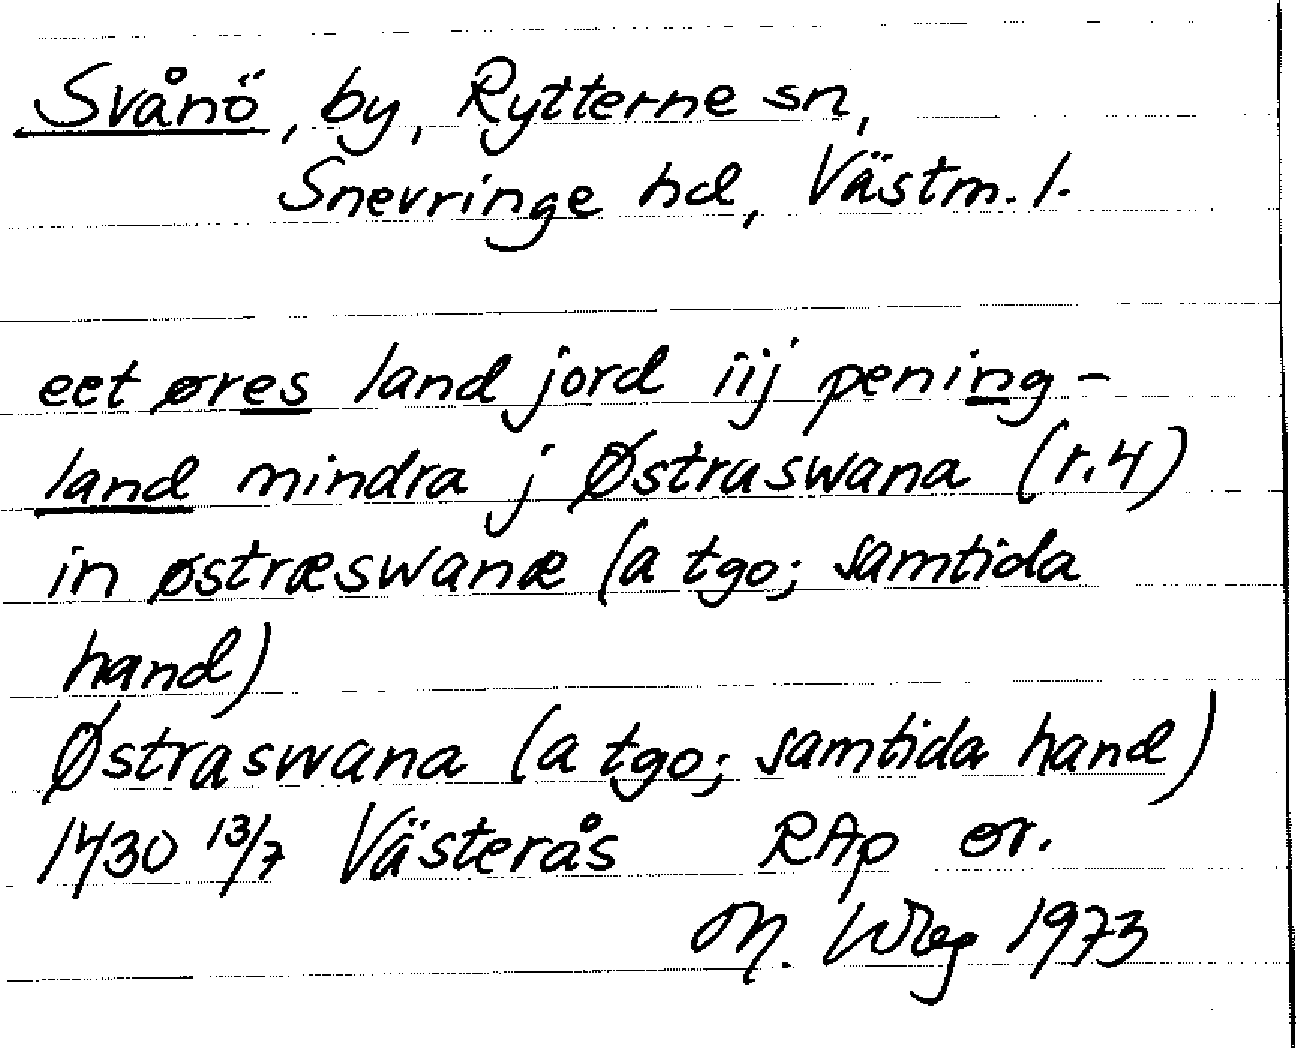 Svånö, by, Rytterne sn,
Snevringe hd, Västm. l.
eet øres land jord iij pening-
land mindra j Østraswana (r. 4)
in østræswanæ (a tgo; samtida
hand)
Østraswana (a tgo; samtida hand)
1430 13/7 Västerås RAp or.
M. Wreg 1973